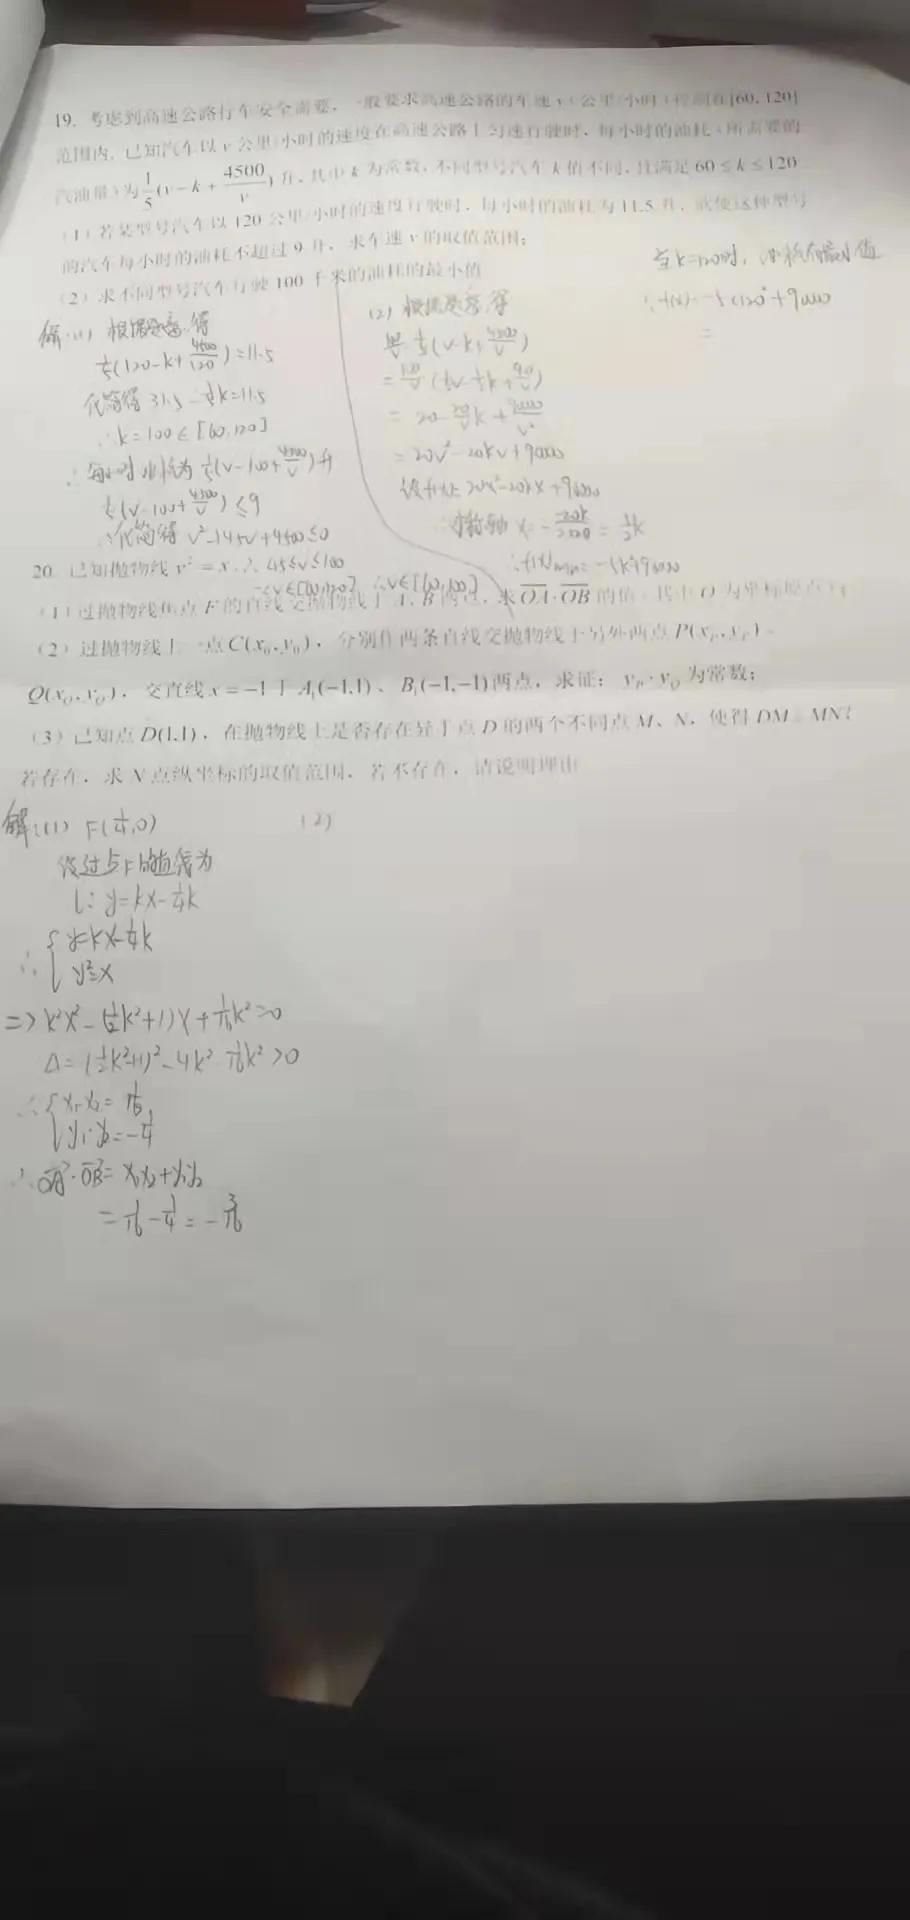 19. 考虑到高速公路行车安全需要，一般要求高速公路的车速v（公里/小时）控制在[60,120]
范围内. 已知汽车以v公里/小时的速度在高速公路上匀速行驶时，每小时的油耗（所需要的
汽油量）为1/5(v-k+4500/v)升，其中k为常数，不同型号汽车k值不同，且满足60≤k≤120
（1）若某型号汽车以120公里/小时的速度行驶时，每小时的油耗为11.5升，欲使这种型号
的汽车每小时的油耗不超过9升，求车速v的取值范围；
（2）求不同型号汽车行驶100千米的油耗的最小值
解:(1) 根据题意,得
1/5(120-k+4500/120)=11.5
化简得 31.5-1/5k=11.5
∴k=100∈[60,120]
∴每小时油耗为1/5(v-100+4500/v)升
1/5(v-100+4500/v)≤9
∴化简得 v²-145v+4500≤0
∴45≤v≤100
∵v∈[60,120] ∴v∈[60,100]
(2) 根据题意,得
1/5(v-k+4500/v)
=100/v(1/5v-1/5k+900/v)
=20-20/v k+90000/v²
=20v²-20kv+90000
设f(x)=20x²-20kx+90000
∴对称轴 x=-=1/2k
∴f(x)min=-5k²+90000
当k=120时，油耗有最小值
∴f(x)=-5(120)²+90000
=
20. 已知抛物线y²=x.
（1）过抛物线焦点F的直线交抛物线于A、B两点，求OA·OB的值（其中O为坐标原点）；
（2）过抛物线上一点C(x₀,y₀)，分别作两条直线交抛物线于另外两点P(x_P,y_P)、
Q(x_Q,y_Q)，交直线x=-1于A₁(-1,1)、B₁(-1,-1)两点，求证：y_P·y_Q为常数；
（3）已知点D(1,1)，在抛物线上是否存在异于点D的两个不同点M、N，使得DM⊥MN？
若存在，求N点纵坐标的取值范围，若不存在，请说明理由
解:(1) F(1/4,0)
设过点F的直线为
l: y=kx-1/4k
∴{y=kx-1/4k
y²=x
=>k²x²-(1/2k²+1)x+1/16k²=0
Δ=(1/2k²+1)²-4k²·1/16k²>0
∴{x₁·x₂=1/16,
y₁·y₂=-1/4
∴OA·OB=x₁x₂+y₁y₂
=1/16-1/4=-3/16
(2)